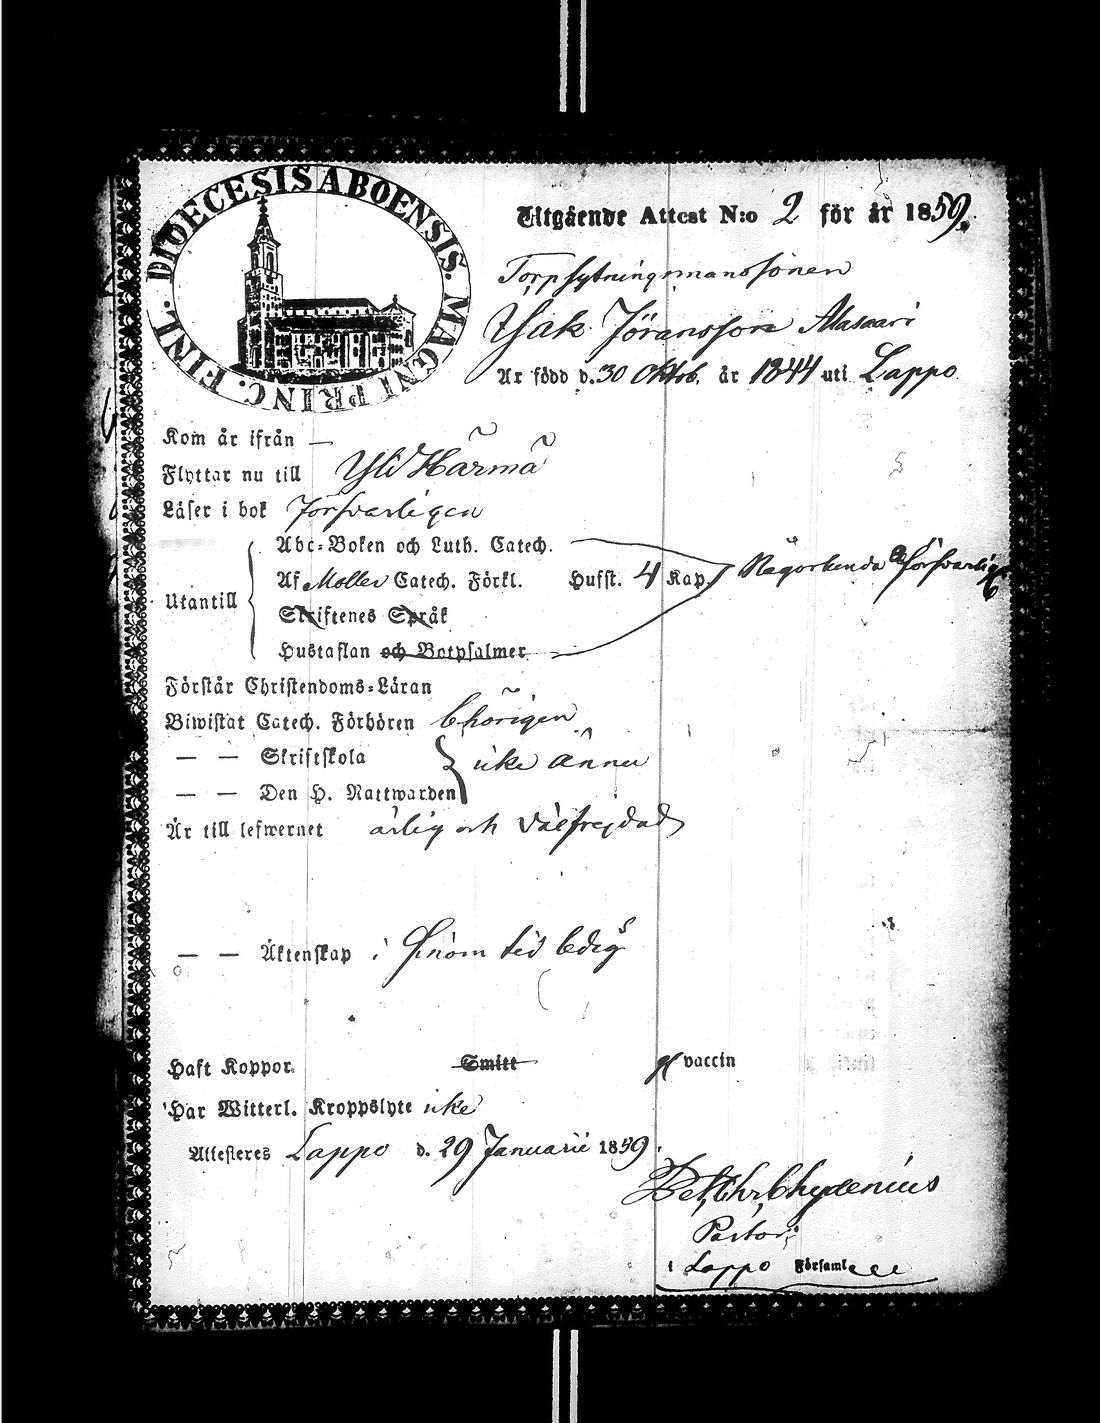 DIOECESIS ABOENSIS. MAGNI PRINC. FINL.
Utgående Attest N:o 2 för år 1859.
Torpsytningsmanssonen
Isak Jöransson Alasaari
Är född d. 30 Oktob. år 1844 uti Lappo
Kom år ifrån —
Flyttar nu till Yli Härmä
Läser i bok Försvarligen
Utantill
Abc-Boken och Luth. Catech.
Af Möller Catech. Förkl. Hufst. 4 Kap. Någorlunda Försvarlig
Skriftenes Språk
Hustaflan och Botpsalmer
Förstår Christendoms-Läran
Biwistat Catech. Förhören behörigen
— — Skriftskola
icke ännu
— — Den H. Nattwarden
Är till lefwernet ärlig och välfrejdad
— — Äktenskap i Hinom tid ledig
Haft Koppor. Smitt vaccin
Har Witterl. Kroppslyte icke
Attesteres Lappo d. 29 Januarii 1859.
Chydenius
Pastor
i Lappo Förseml